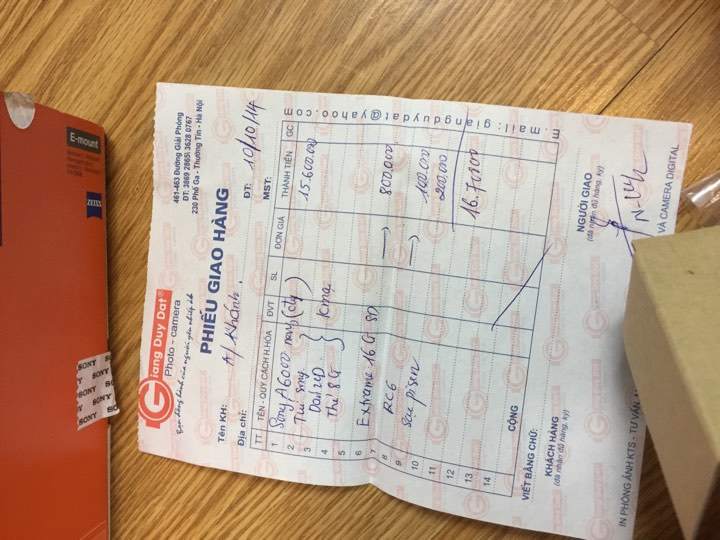 Giang Duy Dat®
Photo - camera
Bạn đồng hành của người yêu nhiếp ảnh
461-463 Đường Giải Phóng
ĐT: 3869 2865\ 3628 0767
230 Phố Ga - Thường Tín - Hà Nội
PHIẾU GIAO HÀNG
Tên KH: A/ Khánh. ĐT: 10/10/14
Địa chỉ: MST:
TT TÊN - QUY CÁCH H.HÓA ĐVT SL ĐƠN GIÁ THÀNH TIỀN GC
1 Sony A6000 nâu (cty) 15.600.000
2 Túi Sony
3 Dán LCD
4 Thẻ 8G } Kmại
5
6 Extrame 16G SD 800.000
7
8 RC6 100.000
9 Sạc pisen 200.000
10
11
12 16.700.000
13
14
CỘNG
VIẾT BẰNG CHỮ:
KHÁCH HÀNG
(đã nhận đủ hàng, ký)
NGƯỜI GIAO
(đã nhận đủ hàng, ký)
E.mail: giangduydat@yahoo.com
IN PHÓNG ẢNH KTS - TƯ VẤN
VÀ CAMERA DIGITAL
E-mount
ZEISS
SONY
SONY
SONY
SONY